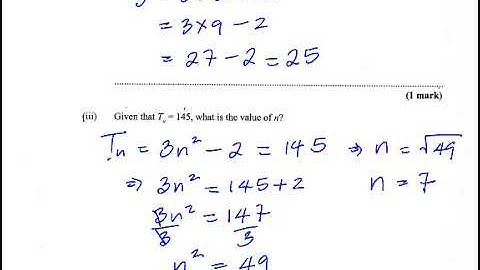 = 3×9 − 2
= 27 − 2 = 25
(1 mark)
(iii) Given that Tₙ = 145, what is the value of n?
Tₙ = 3n² − 2 = 145 ⇒ n = √49
⇒ 3n² = 145 + 2 n = 7
3n² = 147
3 3
n² = 49